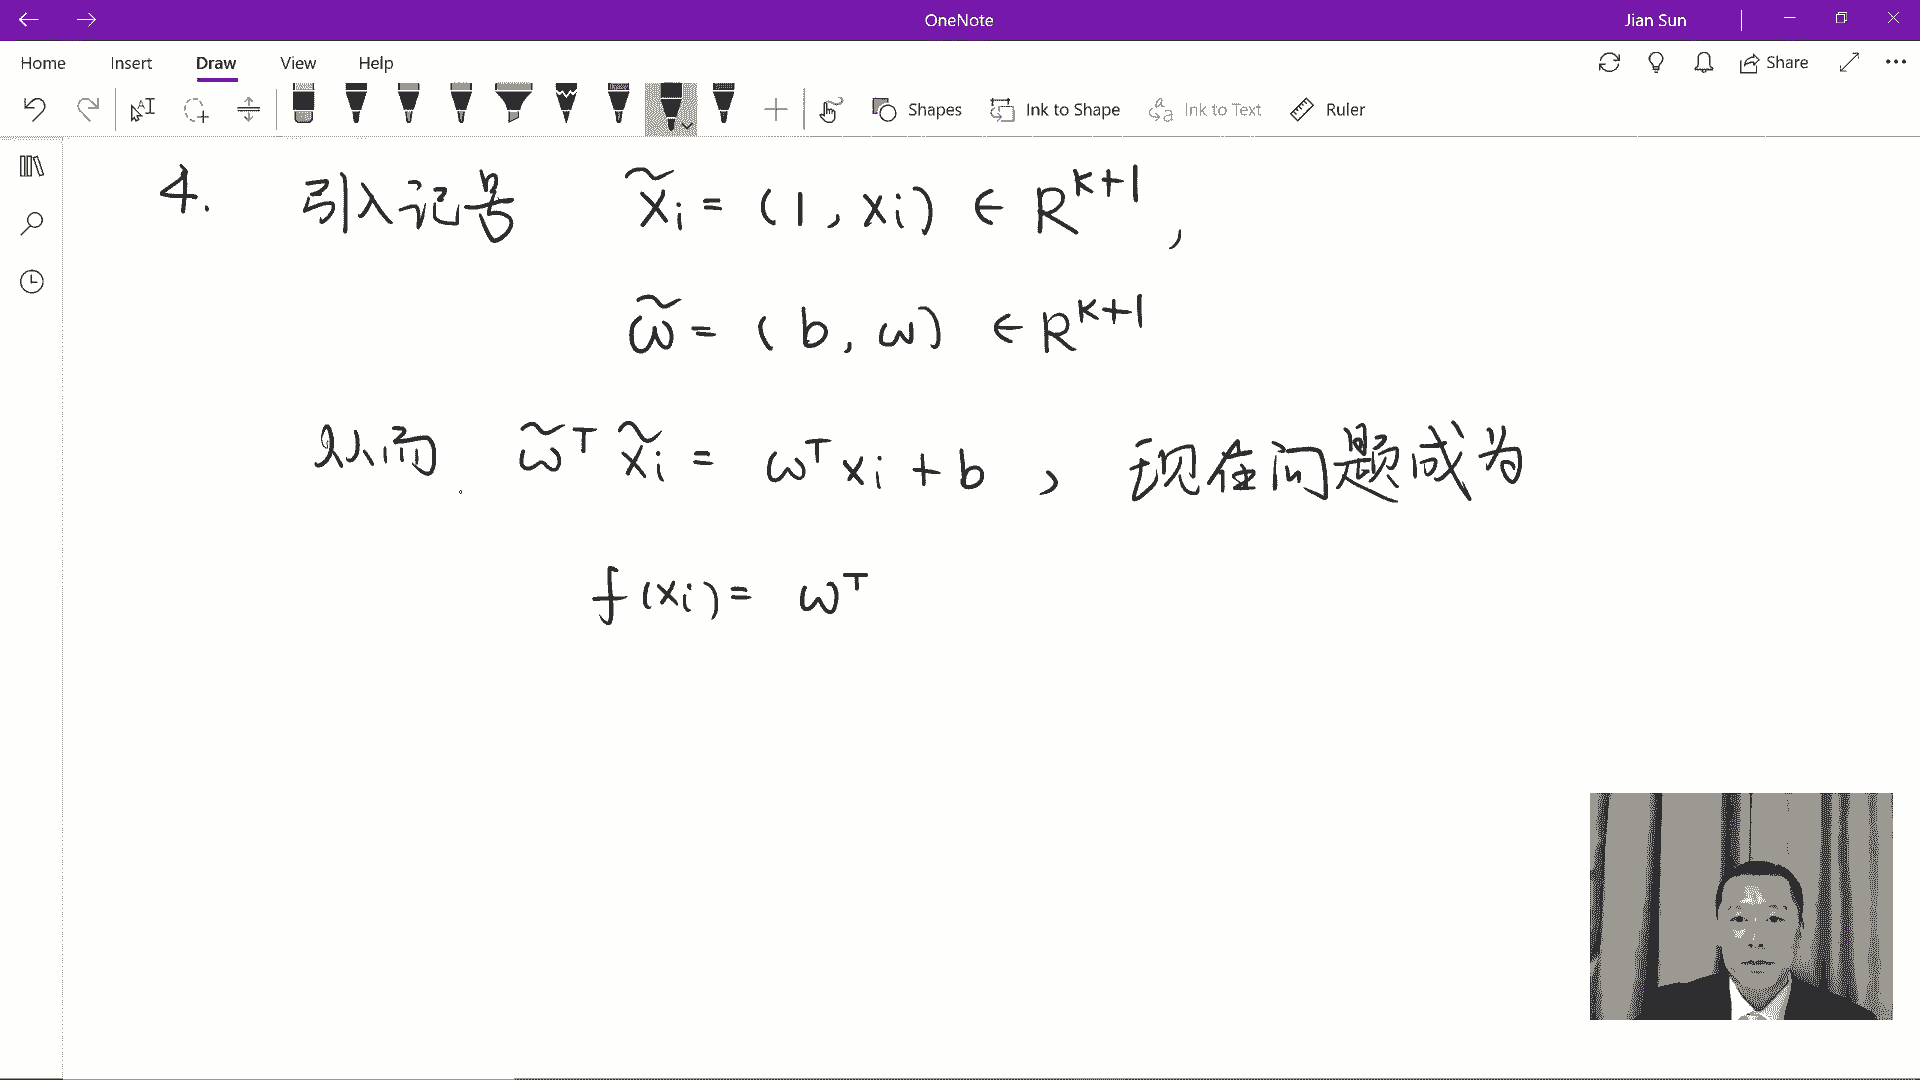 OneNote
Jian Sun
Home Insert Draw View Help
Share
Shapes Ink to Shape Ink to Text Ruler
4. 引入记号 x̃ᵢ = (1, xᵢ) ∈ R^{k+1},
ω̃ = (b, ω) ∈ R^{k+1}
从而 ω̃ᵀ x̃ᵢ = ωᵀxᵢ + b, 现在问题成为
f(xᵢ) = ωᵀ